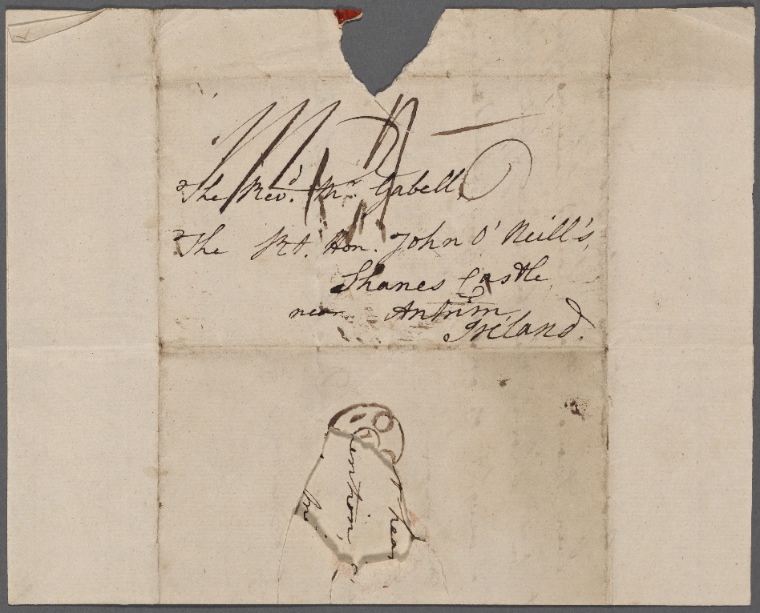 The Revd. Mr. Gabell,
The Rt. Hon. John O'Neill's,
Shanes Castle,
near Antrim,
Ireland.